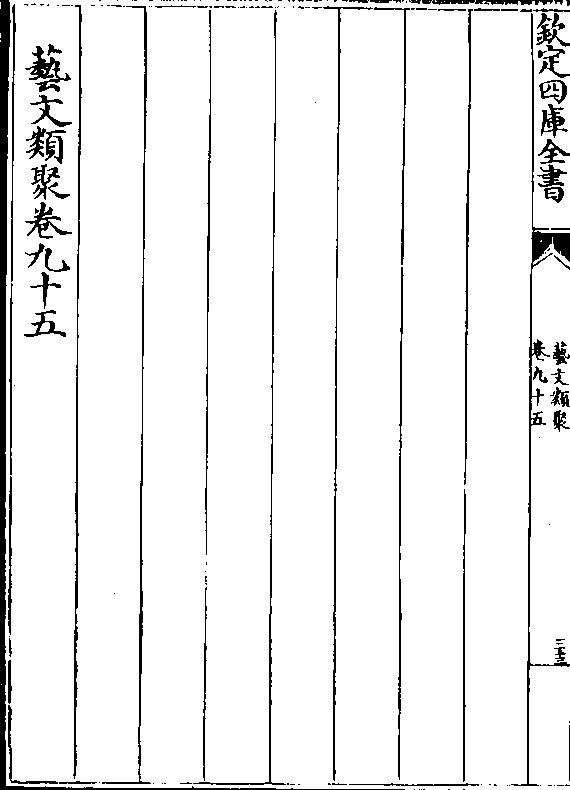 欽定四庫全書
藝文類聚
卷九十五
藝文類聚卷九十五